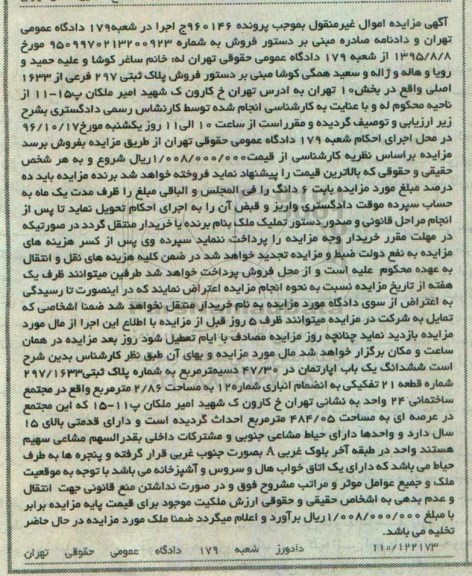 آگهی مزایده اموال غیرمنقول بموجب پرونده ۹۶۰۱۴۶ج اجرا در شعبه۱۷۹ دادگاه عمومی
تهران و دادنامه صادره مبنی بر دستور فروش به شماره ۹۵۰۹۹۷۰۲۱۳۲۰۰۹۲۳ مورخ
۱۳۹۵/۸/۸ از شعبه ۱۷۹ دادگاه عمومی حقوقی تهران له: خانم ساغر کوشا و علیه حمید و
رویا و هاله و ژاله و سعید همگی کوشا مبنی بر دستور فروش پلاک ثبتی ۲۹۷ فرعی از ۱۶۳۳
اصلی واقع در بخش۱۰ تهران به ادرس تهران خ کارون ک شهید امیر ملکان پ۱۵-۱۱ از
ناحیه محکوم له و با عنایت به کارشناسی انجام شده توسط کارشناس رسمی دادگستری بشرح
زیر ارزیابی و توصیف گردیده و مقرر است از ساعت ۱۰ الی۱۱ روز یکشنبه مورخ۹۶/۱۰/۱۷
در محل اجرای احکام شعبه ۱۷۹ دادگاه عمومی حقوقی تهران از طریق مزایده بفروش برسد
مزایده براساس نظریه کارشناسی از قیمت۱/۰۰۸/۰۰۰/۰۰۰ریال شروع و به هر شخص
حقیقی و حقوقی که بالاترین قیمت را پیشنهاد نماید فروخته خواهد شد برنده مزایده باید ده
درصد مبلغ مورد مزایده بابت ۶ دانگ را فی المجلس و الباقی مبلغ را ظرف مدت یک ماه به
حساب سپرده موقت دادگستری واریز و قبض آن را به اجرای احکام تحویل نماید تا پس از
انجام مراحل قانونی و صدور دستور تملیک ملک بنام برنده یا خریدار منتقل گردد در صورتیکه
در مهلت مقرر خریدار وجه مزایده را پرداخت ننماید سپرده وی پس از کسر هزینه های
مزایده به نفع دولت ضبط و مزایده تجدید خواهد شد در ضمن کلیه هزینه های نقل و انتقال
به عهده محکوم علیه است و از محل فروش پرداخت خواهد شد طرفین میتوانند ظرف یک
هفته از تاریخ مزایده نسبت به نحوه انجام مزایده اعتراض نمایند که در اینصورت تا رسیدگی
به اعتراض از سوی دادگاه مورد مزایده به نام خریدار منتقل نخواهد شد ضمنا اشخاصی که
تمایل به شرکت در مزایده میتوانند ظرف ۵ روز قبل از مزایده با اطلاع این اجرا از مال مورد
مزایده بازدید نماید چنانچه روز مزایده مصادف با ایام تعطیل شود روز بعد مزایده در همان
ساعت و مکان برگزار خواهد شد مال مورد مزایده و بهای آن طبق نظر کارشناس بدین شرح
است ششدانگ یک باب اپارتمان در ۴۷/۳۰ دسیمترمربع به شماره پلاک ثبتی۲۹۷/۱۶۳۳
شماره قطعه ۲۱ تفکیکی به انضمام انباری شماره۱۲ به مساحت ۲/۸۶ مترمربع واقع در مجتمع
ساختمانی ۲۴ واحد به نشانی تهران خ کارون ک شهید امیر ملکان پ۱۱-۱۵ که این مجتمع
در عرصه ای به مساحت ۴۸۴/۰۵ مترمربع احداث گردیده است و دارای قدمتی بالای ۱۵
سال دارد و واحدها دارای حیاط مشاعی جنوبی و مشترکات داخلی بقدرالسهم مشاعی سهیم
هستند واحد در طبقه آخر بلوک غربی A بصورت جنوب غربی قرار گرفته و پنجره ها به طرف
حیاط می باشد که دارای یک اتاق خواب هال و سروس و آشپزخانه می باشد با توجه به موقعیت
ملک و جمیع عوامل موثر و مراتب مشروح فوق و در صورت نداشتن منع قانونی جهت انتقال
و عدم بدهی به اشخاص حقیقی و حقوقی ارزش ملکیت موجود برای قیمت پایه مزایده برابر
با مبلغ ۱/۰۰۸/۰۰۰/۰۰۰ریال برآورد و اعلام میگردد ضمنا ملک مورد مزایده در حال حاضر
تخلیه می باشد.
۱۱۰/۱۲۲۱۷۳ دادورز شعبه ۱۷۹ دادگاه عمومی حقوقی تهران